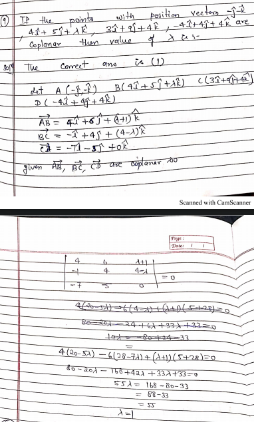 If the points with position vectors -ĵ-k̂
, 4î+5ĵ+λk̂, 3î+9ĵ+4k̂, -4î+4ĵ+4k̂ are
coplanar then value of λ is:-
The Correct ans is (1)
let A(-ĵ-k̂) B(4î+5ĵ+λk̂) C(3î+9ĵ+4k̂)
D(-4î+4ĵ+4k̂)
AB = 4î+6ĵ+(λ+1)k̂
BC = -î+4ĵ+(4-λ)k̂
CD = -7î-5ĵ+0k̂
given AB, BC, CD are coplanar so
Scanned with CamScanner
Page:
Date: / /
4 6 λ+1
-1 4 4-λ = 0
-7 5 0
4(20-5λ) - 6(28-7λ) + (λ+1)(5+28) = 0
80-20λ - 168+42λ + 33λ+33 = 0
55λ = 168-80-33
= 88-33
= 55
λ=1